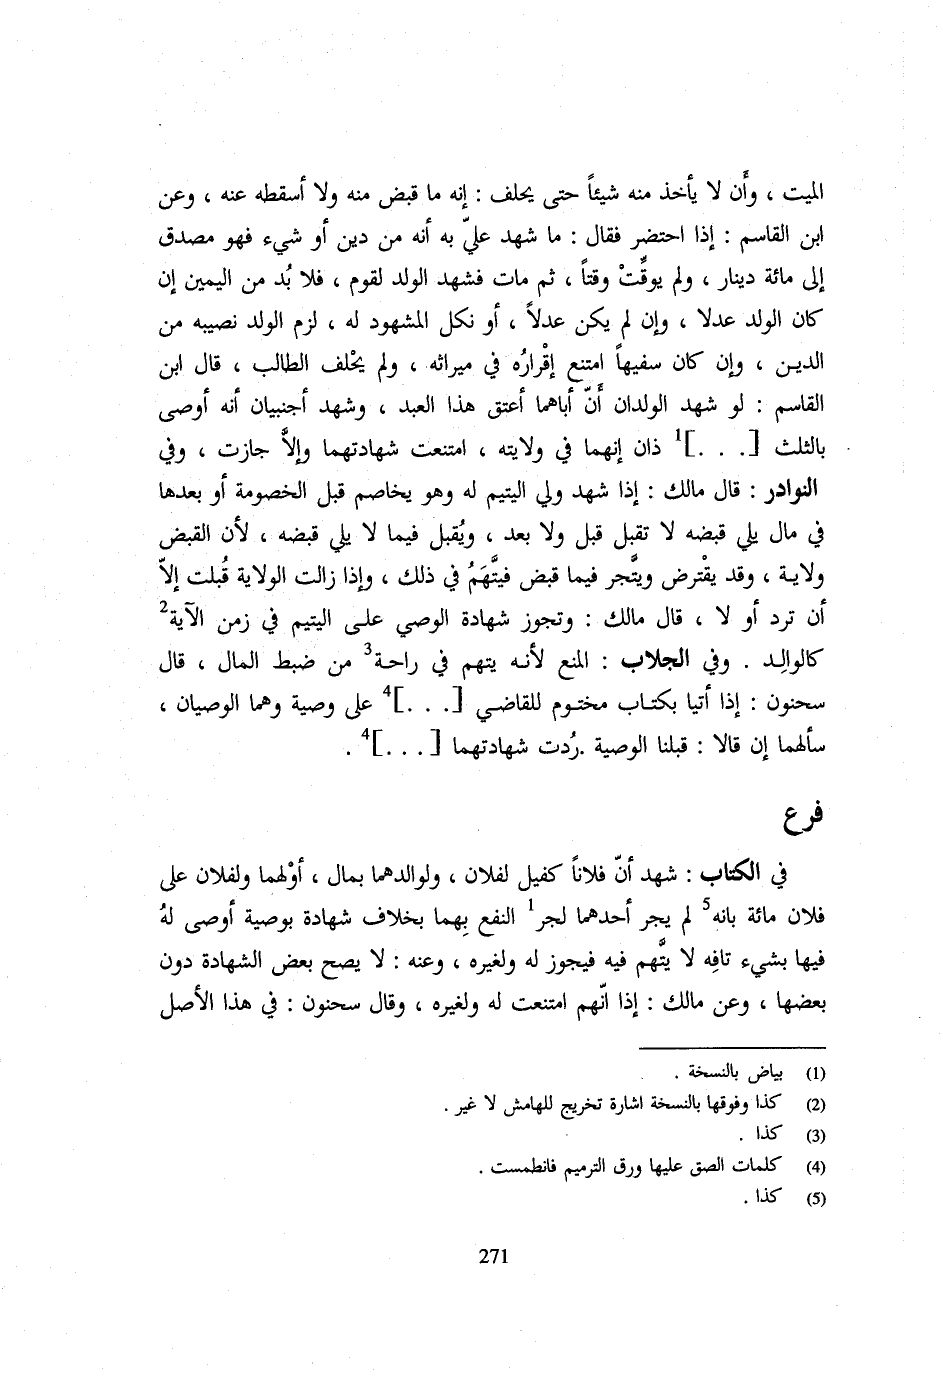 الميت ، وأَن لا يأخذ منه شيئاً حتى يحلف : إنه ما قبض منه ولا أسقطه عنه ، وعن
ابن القاسم : إذا احتضر فقال : ما شهد عليّ به أنه من دين أو شيء فهو مصدق
إلى مائة دينار ، ولم يوقِّتْ وقتاً ، ثم مات فشهد الولد لقوم ، فلا بُد من اليمين إن
كان الولد عدلا ، وإن لم يكن عدلاً ، أو نكل المشهود له ، لزم الولد نصيبه من
الدين ، وإن كان سفيهاً امتنع إقْرارُه في ميراثه ، ولم يحْلف الطالب ، قال ابن
القاسم : لو شهد الولدان أَنّ أباهما أعتق هذا العبد ، وشهد أجنبيان أنه أوصى
بالثلث [. . .]1 ذان إنهما في ولايته ، امتنعت شهادتهما وإلاَّ جازت ، وفي
النوادر : قال مالك : إذا شهد ولي اليتيم له وهو يخاصم قبل الخصومة أو بعدها
في مال يلي قبضه لا تقبل قبل ولا بعد ، ويُقبل فيما لا يلي قبضه ، لأن القبض
ولاية ، وقد يقْترض ويتَّجر فيما قبض فيتَّهَمُ في ذلك ، وإذا زالت الولاية قُبلت إلاّ
أن ترد أو لا ، قال مالك : وتجوز شهادة الوصي على اليتيم في زمن الآية2
كالوالِد . وفي الجلاب : المنع لأنه يتهم في راحة3 من ضبط المال ، قال
سحنون : إذا أتيا بكتاب مختوم للقاضي [. . .]4 على وصية وهما الوصيان ،
سألهما إن قالا : قبلنا الوصية .رُدت شهادتهما [. . .]4 .
فرع
في الكتاب : شهد أنّ فلاناً كفيل لفلان ، ولوالدهما بمال ، أوْلهما ولفلان على
فلان مائة بانه5 لم يجر أحدهما لجر1 النفع بِهما بخلاف شهادة بوصية أوصى لهُ
فيها بشيء تافِه لا يتَّهم فيه فيجوز له ولغيره ، وعنه : لا يصح بعض الشهادة دون
بعضها ، وعن مالك : إذا اتّهم امتنعت له ولغيره ، وقال سحنون : في هذا الأصل
(1) بياض بالنسخة .
(2) كذا وفوقها بالنسخة اشارة تخريج للهامش لا غير .
(3) كذا .
(4) كلمات الصق عليها ورق الترميم فانطمست .
(5) كذا .
271